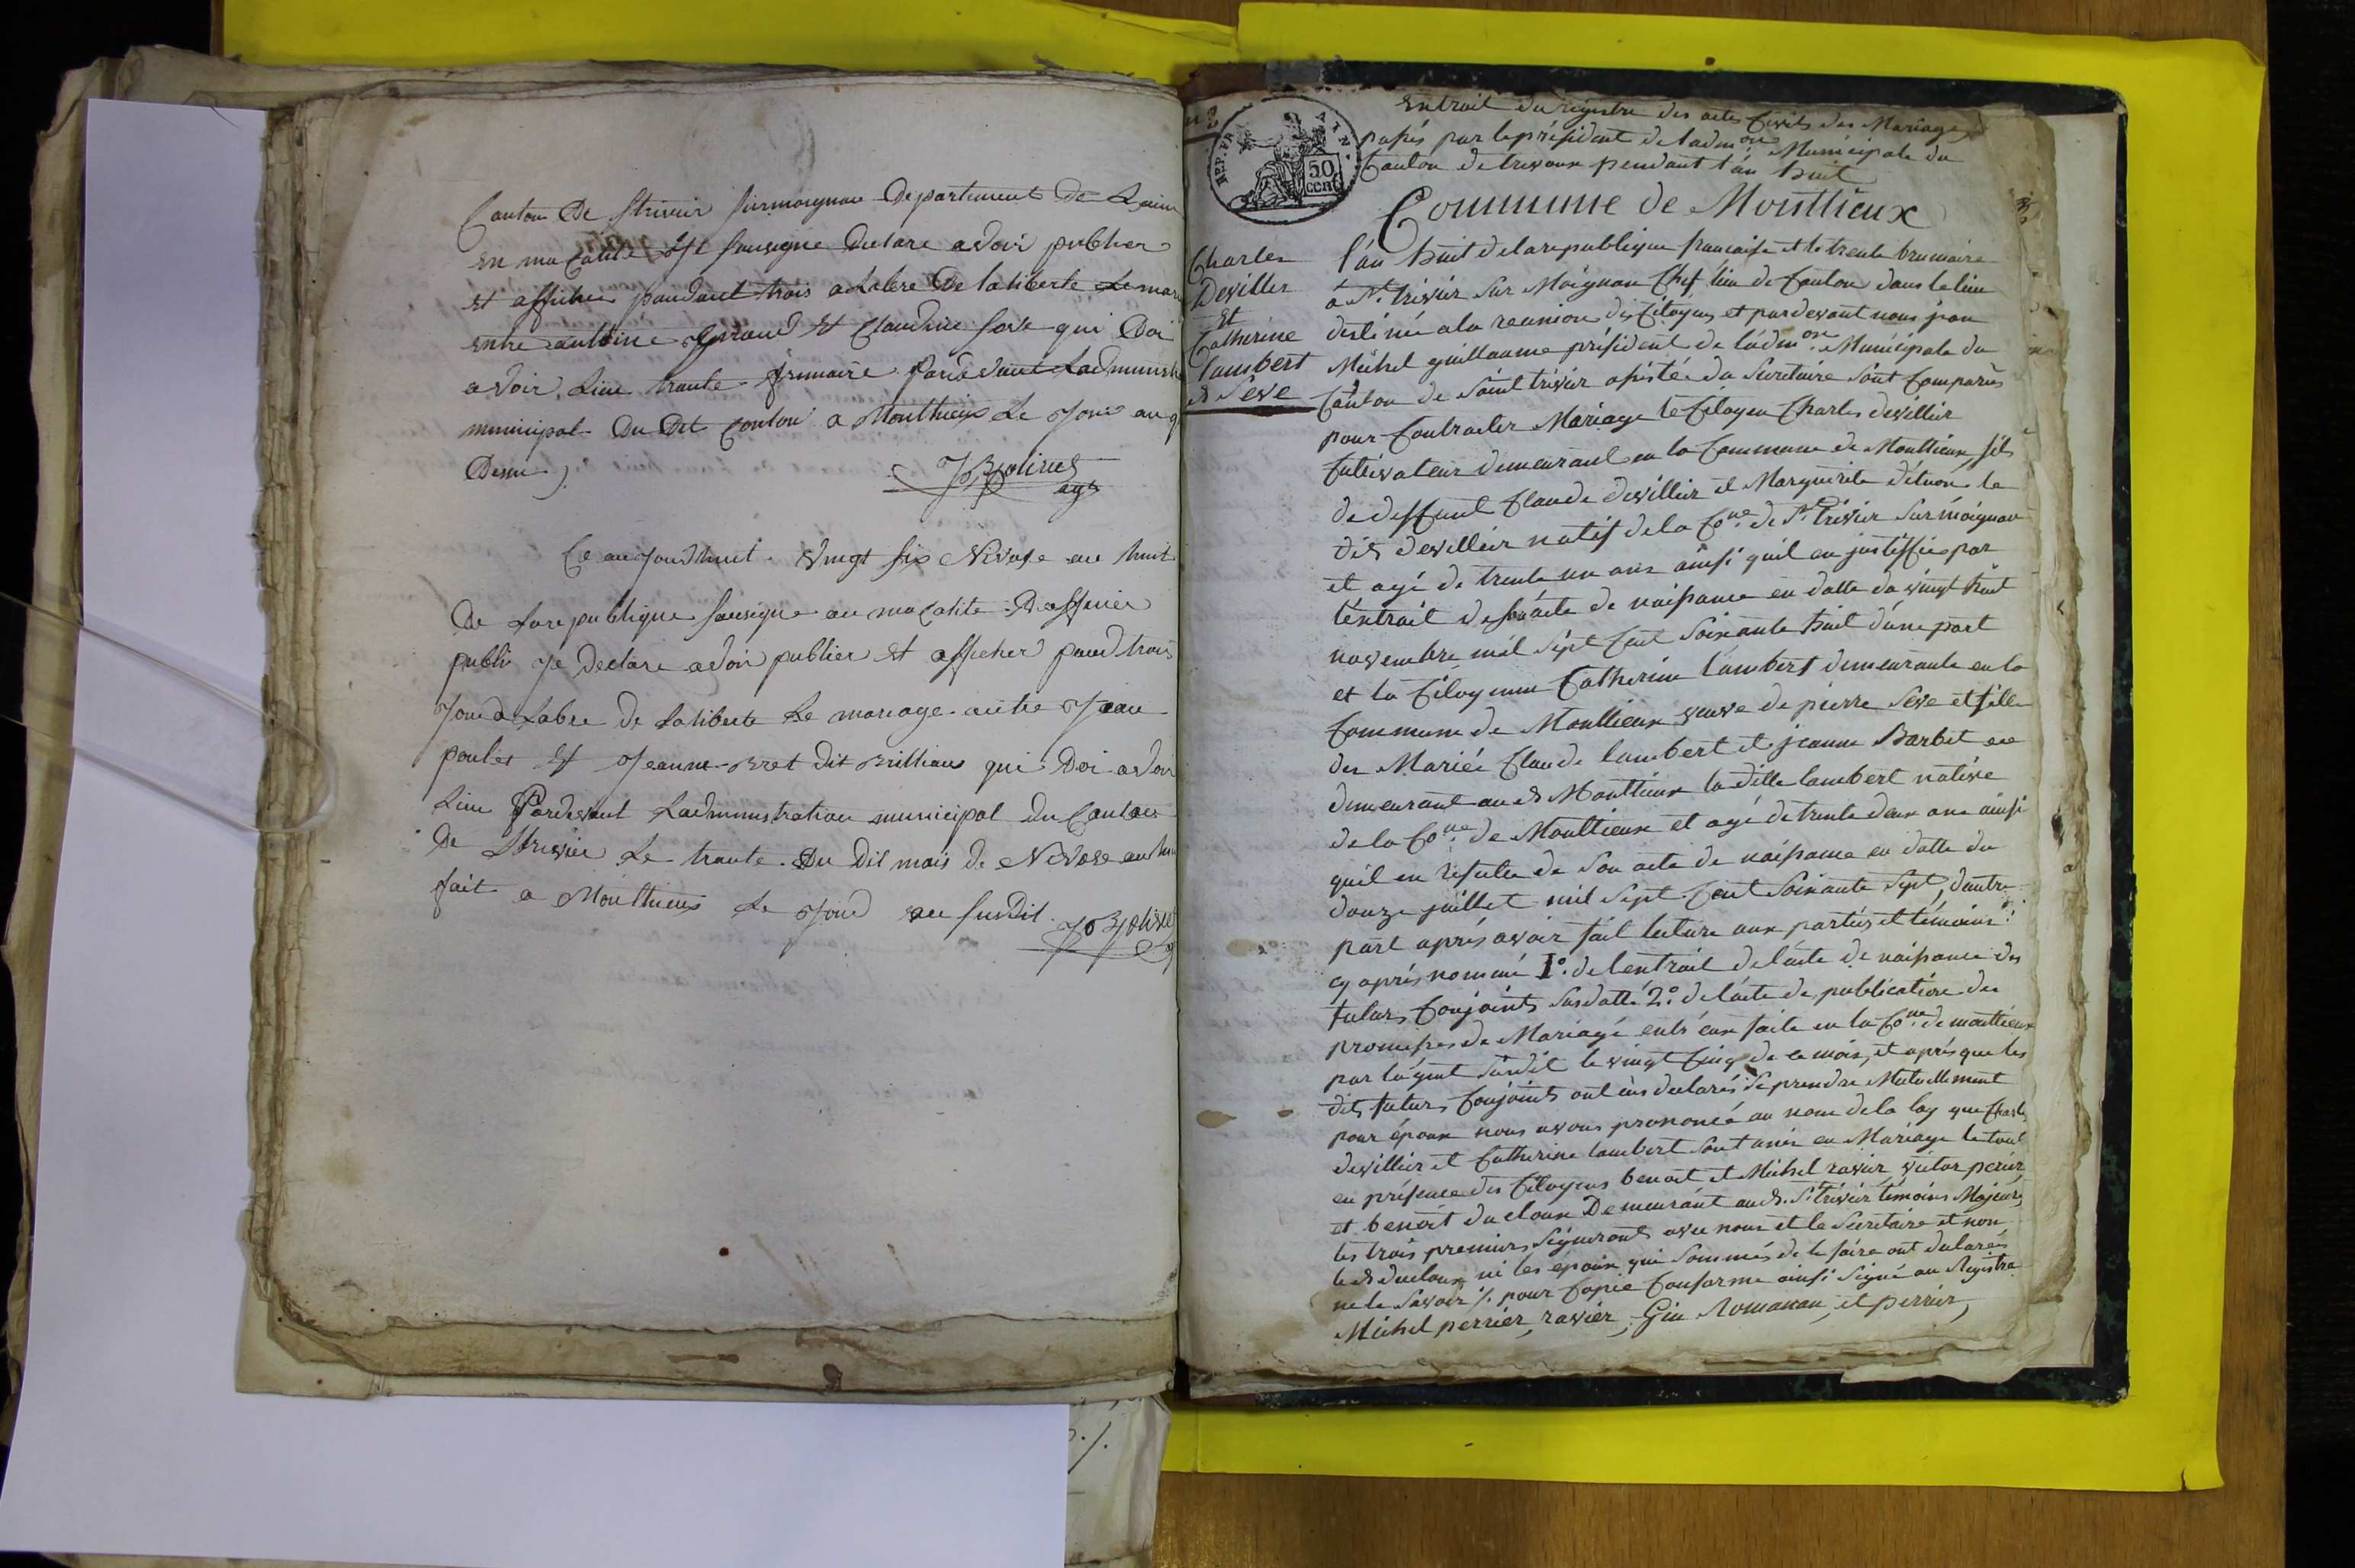 Canton De Strivier surmoignan Departement De Lain
en ma Calite Je sousigne Declare a Voir publier
et afficher pandant trois a Labre De la liberte Le mari
entre antoine Giraud Et Claudine seve qui Doi
a Voir Lieu trante frimaire Pardevant Ladministr
municipal Du Dit Canton a Monthieux Le Jour an q
Desus
JB Jolivet
agt
Ce aujourdhuit vingt six Nivose an huit
De La republique sousigne an ma Calite D'officier
public Je Declare a Voir publier Et afficher pand trois
Jour a Labre de La liberte Le mariage entre Jean
poulet Et Jeanne Bret dit Brilliant qui Doi a Voir
Lieu Pardevant Ladministration municipal Du Canton
De Strivier Le trante Du Dit mois De Nivose an hui
fait a Monthieux Le Jour an susdit JB Jolivet
REP. FRA
50
cent
Extrait du registre des actes Civils des Mariages
passés par le président de l'admon Municipale du
Canton de trevoux pendant l'an huit
Commune de Monthieux
Charles
Deviller
et
Catherine
Lambert
V. Seve
l'an huit de la republique francaise et le trente brumaire
à St. trivier sur Moignan Chef lieu de Canton dans le lieu
destiné a la reunion des Citoyens et pardevant nous jean
Michel guillaume président de l'admon Municipale du
Canton de Saint trivier assisté du Secretaire sont Comparus
pour Contracter Mariage le Citoyen Charles devillier
Cultivateur demeurant en la Commune de Monthieux fils
de deffunt Claude devillier et Marguerite le
dit devillier natif de la Cone de St. trivier sur moignan
et agé de trente un ans ainsi quil en justiffie par
l'extrait de son acte de naissance en datte du vingt huit
novembre mil sept Cent soixante huit d'une part
et la Citoyenne Catherine lambert demeurante en la
Commune de Monthieux veuve de pierre Seve et fille
des Mariés Claude lambert et jeanne Barbet
demeurant aud. Monthieux la ditte lambert native
de la Cone de Monthieux et agé de trente deux ans ainsi
quil en resulte de son acte de naissance en datte du
douze juillet mil sept Cent soixante sept, dautre
part après avoir fait lecture aux parties et témoins
cy après nommé 1o. de l'extrait de l'acte de naissance des
futurs Conjoints susdatté 2o. de l'acte de publication des
promesses de Mariage entr'eux faite en la Cone de montieux
par l'agent susdit le vingt Cinq de ce mois, et après que les
dits futurs Conjoints ont eus declarés se prendre Mutuellement
pour époux nous avons prononcé au nom de la loy que Charles
devillier et Catherine lambert sont unis en Mariage le tout
en présence des Citoyens benoit et Michel ravier, victor perier
et benoit du cloux Demeurant aud. St. trivier témoins Majeurs
les trois premiers signeront avec nous et le Secretaire et non
led ducloux ni les époux qui sommés de le faire ont declarés
ne le savoir /. pour Copie Conforme ainsi signé au Registre
Michel perrier, ravier, Romanan, et perrier,